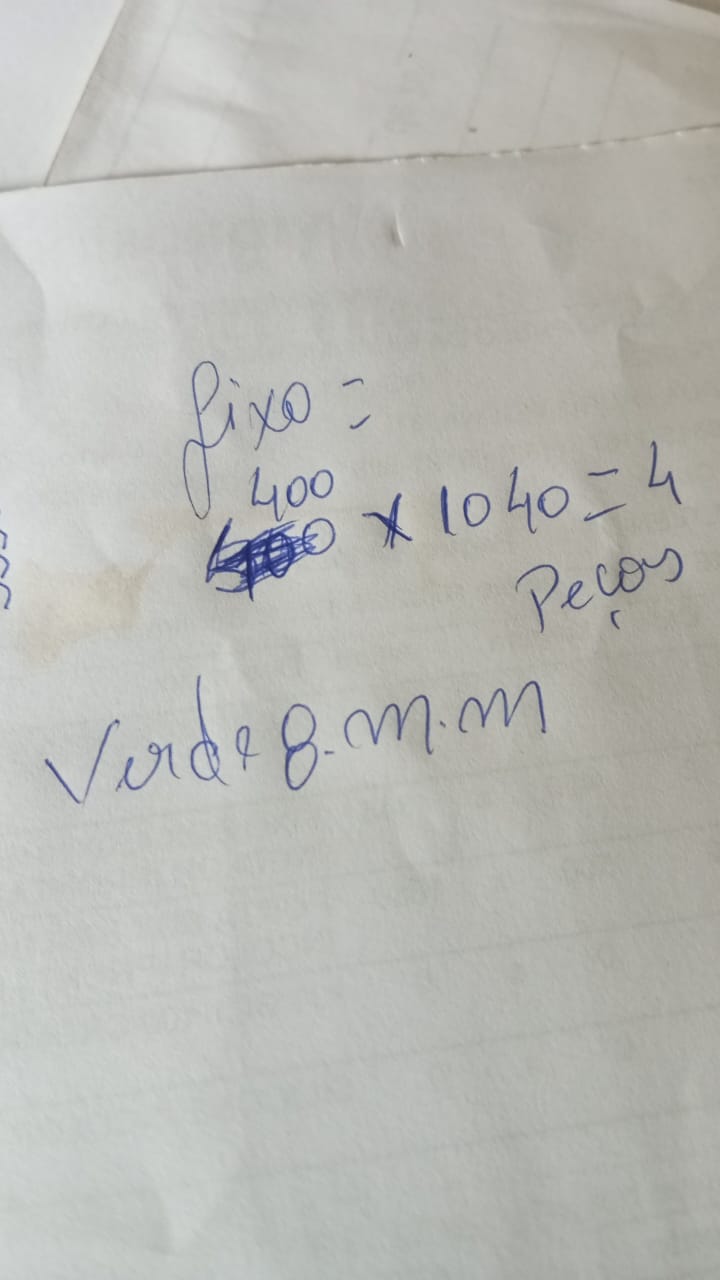 fixo =
400
x 1040 = 4
Peças
Verde 8.m.m